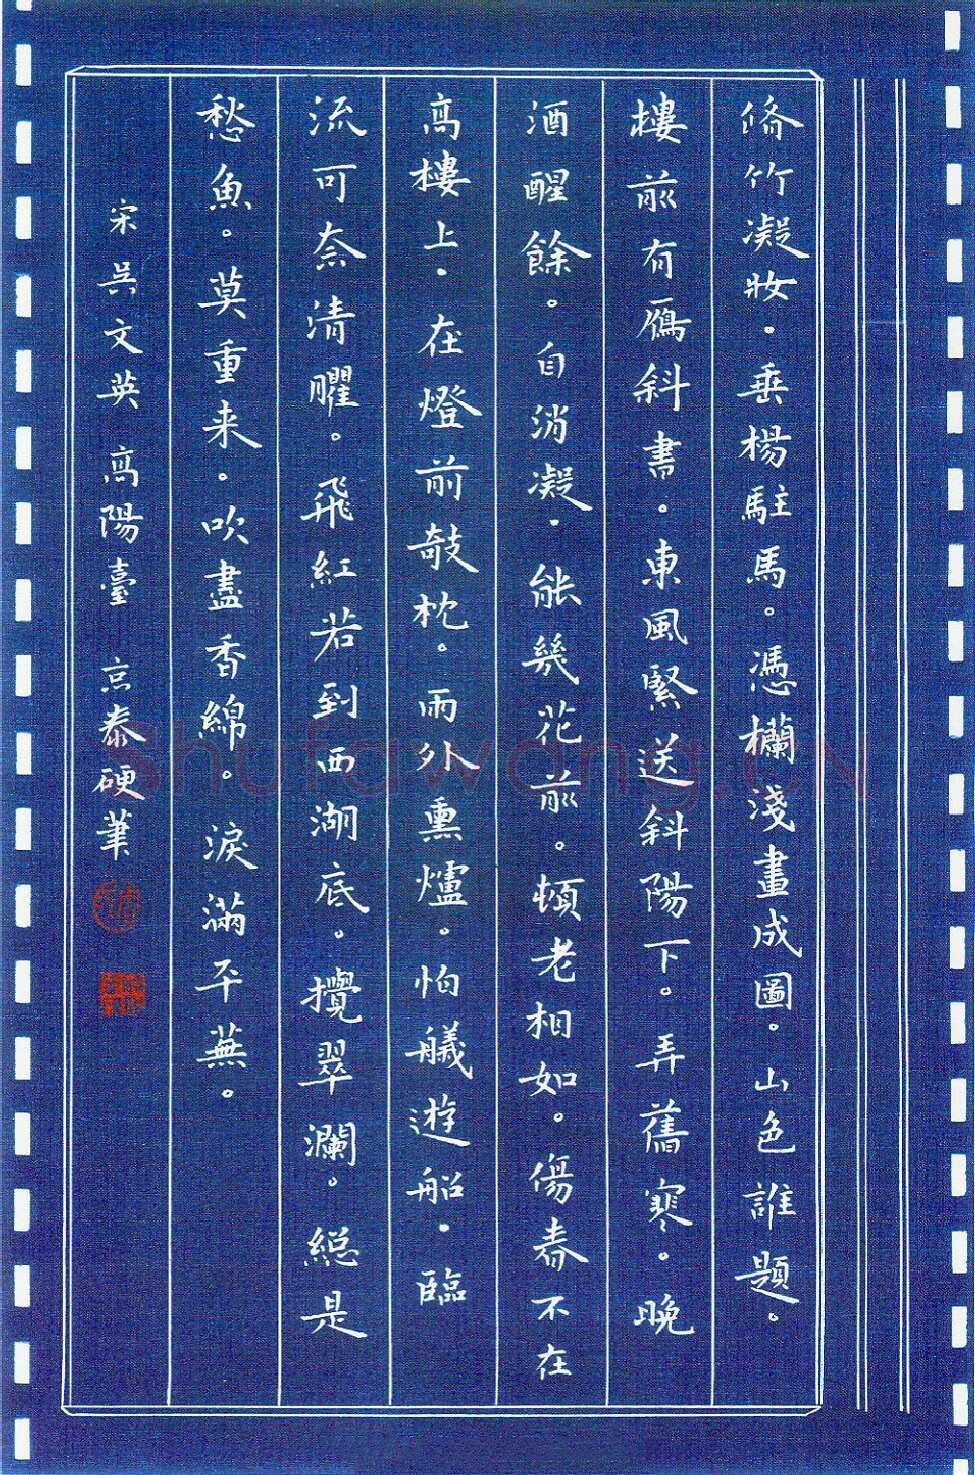 脩竹凝妝。垂楊駐馬。憑欄淺畫成圖。山色誰題。
樓前有雁斜書。東風緊送斜陽下。弄舊寒。晚
酒醒餘。自消凝。能幾花前。頓老相如。傷春不在
高樓上。在燈前敧枕。雨外熏爐。怕艤遊船。臨
流可奈清臞。飛紅若到西湖底。攪翠瀾。總是
愁魚。莫重来。吹盡香綿。淚滿平蕪。
宋吳文英高陽臺 京泰硬筆
shufawang.CN